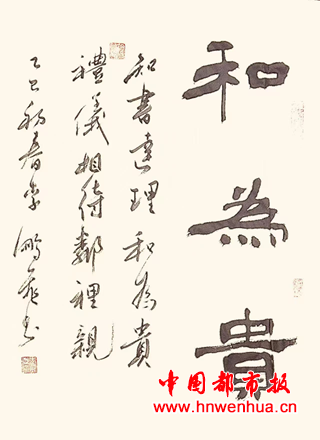 和為貴
知書達理和為貴
禮儀相待鄰裡親
乙丑 春 李鵬飛書
中国都市报
www.hnwenhua.cn